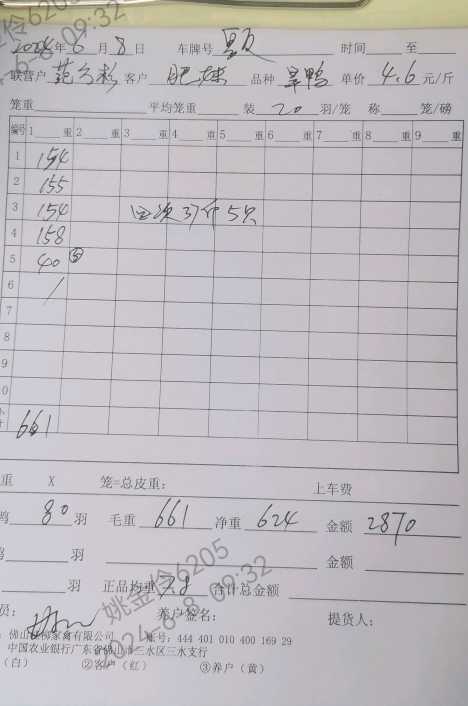 2024年6月8日 车牌号 时间 至
联营户 范 彩 客户 肥妹 品种 旱鸭 单价 4.6 元/斤
笼重 平均笼重 装 20 羽/笼 称 笼/磅
编号 1 重 2 重 3 重 4 重 5 重 6 重 7 重 8 重 9 重
1 154
2 155
3 154 回次37斤5只
4 158
5 40 ⑤
6 /
7
8
9
0
661
重 X 笼=总皮重: 上车费
鸭 80 羽 毛重 661 净重 624 金额 2870
鸭 羽 金额
羽 正品均重 7.8 合计总金额
员: 养户签名: 提货人:
佛山 家禽有限公司 账号: 444 401 010 400 169 29
中国农业银行广东省佛山市三水区三水支行
(白) ②客户(红) ③养户(黄)
姚金伶6205
2024-6-8 09:32